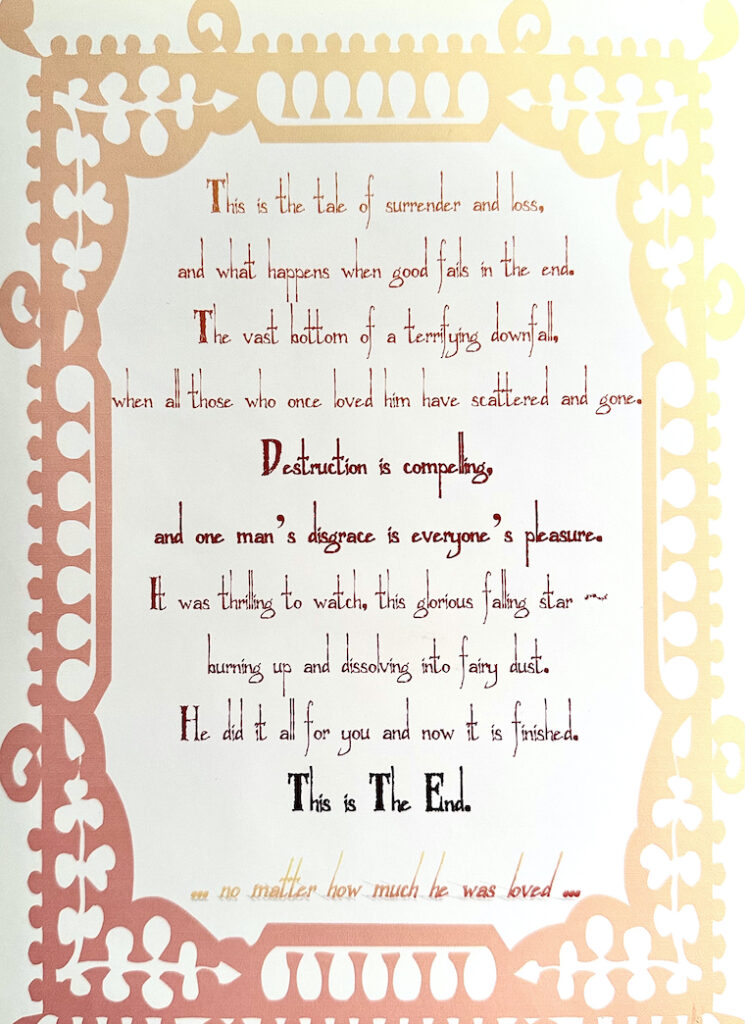 This is the tale of surrender and loss,
and what happens when good fails in the end.
The vast bottom of a terrifying downfall,
when all those who once loved him have scattered and gone.
Destruction is compelling,
and one man's disgrace is everyone's pleasure.
It was thrilling to watch, this glorious falling star ~
burning up and dissolving into fairy dust.
He did it all for you and now it is finished.
This is The End.
... no matter how much he was loved ...